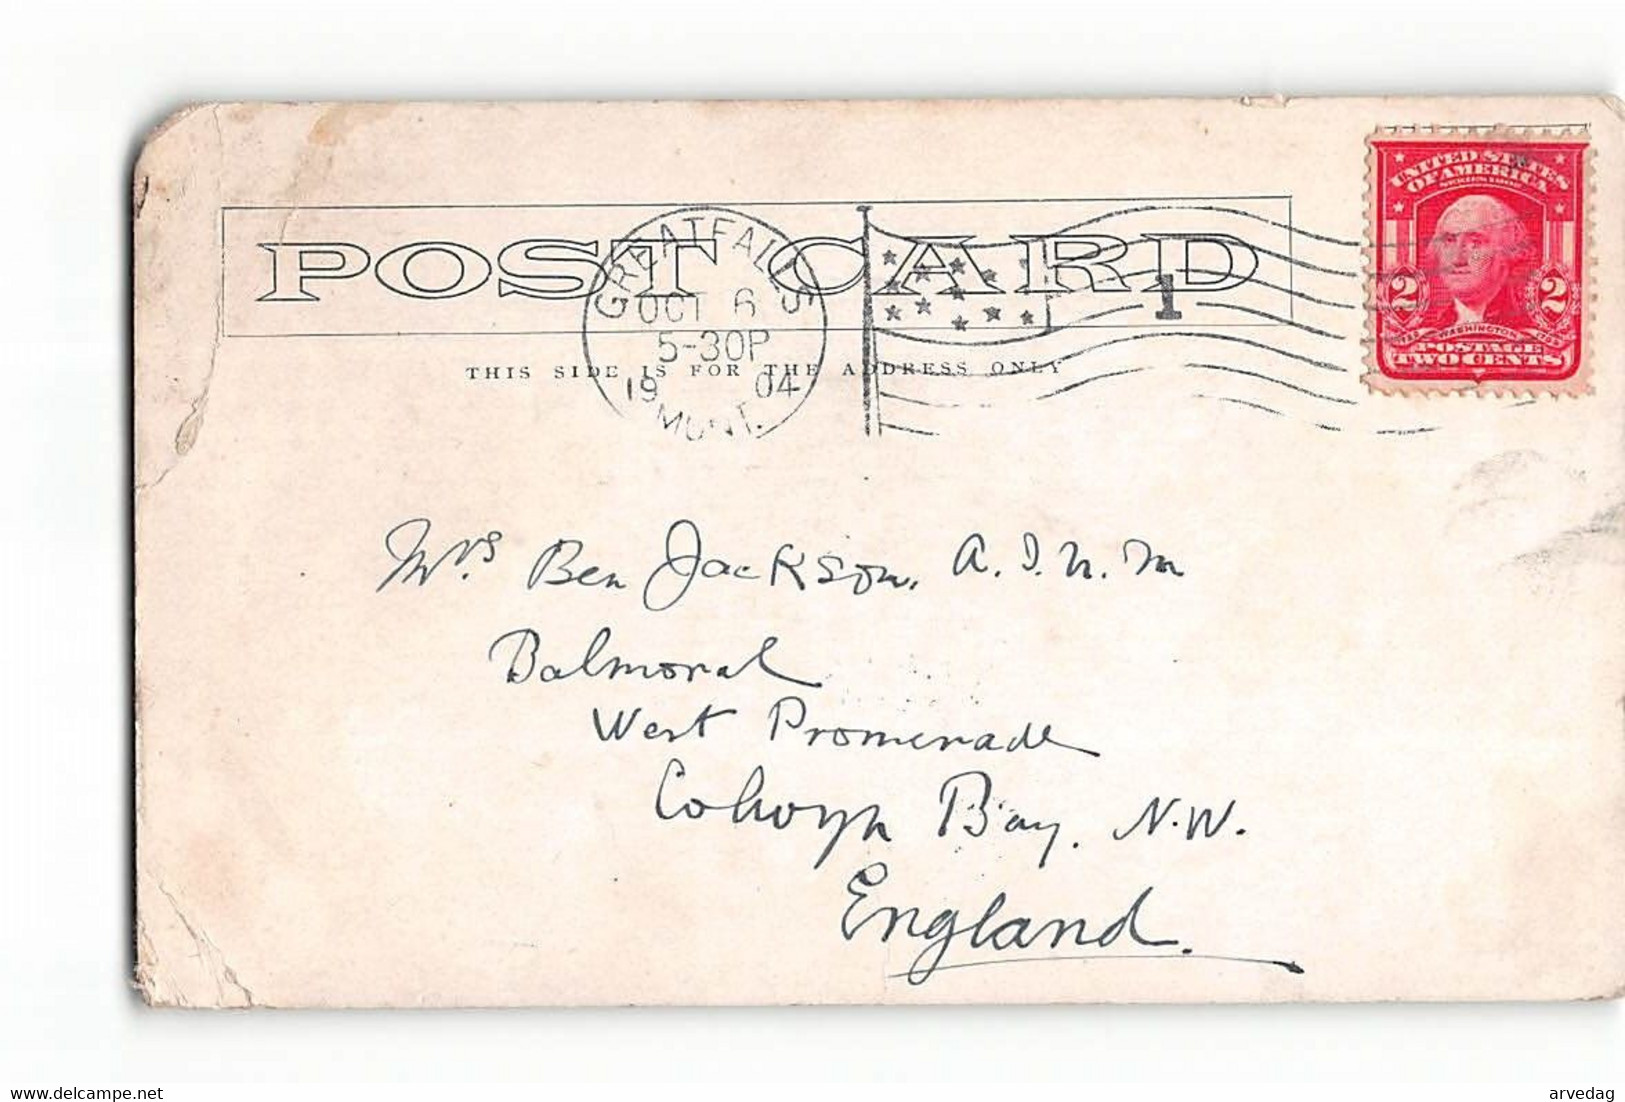 POST CARD
GREAT FALLS
OCT 6
5-30P
1904
MONT.
1
THIS SIDE IS FOR THE ADDRESS ONLY
UNITED STATES
OF AMERICA
SERIES 1902
2 2
WASHINGTON
POSTAGE
TWO CENTS
Mrs Ben Jackson. A.I.N.M
Balmoral
West Promenade
Colwyn Bay. N.W.
England.
arvedag